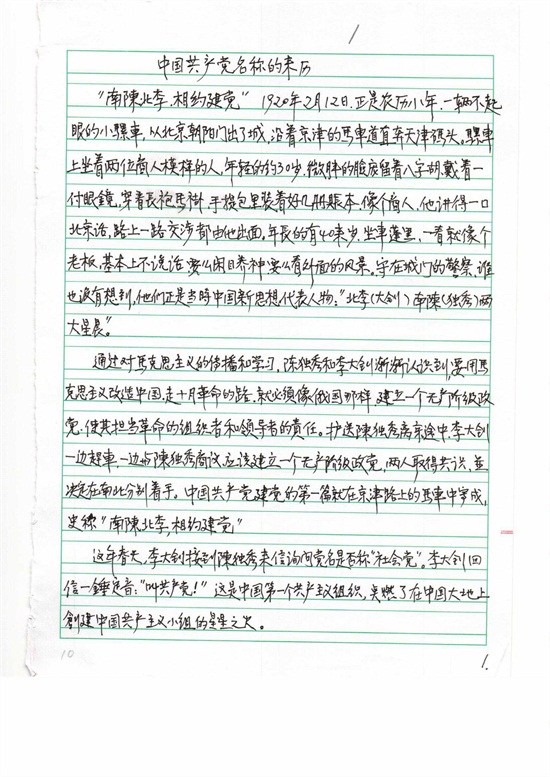 1
中国共产党名称的来历
"南陳北李,相约建党" 1920年2月12日,正是农历小年,一辆不起
眼的小骡車,从北京朝阳门出了城,沿着京津的馬車道直奔天津码头。騾車
上坐着两位商人模样的人,年轻的约30岁,微胖的脸庞留着八字胡,戴着一
付眼鏡,穿着長袍馬褂,手提包里装着好几册賬本,像个商人,他讲得一口
北京话,路上一路交涉都由他出面。年長的有40来岁,坐車蓬里,一看就像个
老板,基本上不说话,要么闲目养神,要么看外面的风景。守在城门的警察,谁
也没有想到,他们正是当時中国新思想代表人物:"北李(大创)南陳(独秀)两
大星晨"。
通过对馬克思主义的传播和学习,陈独秀和李大钊渐渐认识到,要用馬
克思主义改造中国,走十月革命的路,就必须像俄国那样,建立一个无产阶级政
党,使其担当革命的组织者和领导者的责任。护送陳独秀离京途中,李大钊
一边赶車,一边与陳独秀商议,应该建立一个无产阶级政党,两人取得共识,並
决定在南北分别着手。中国共产党建党的第一篇就在京津路上的馬車中写成,
史称"南陳北李,相约建党"
这年春天,李大钊接到陳独秀来信询问党名是否称"社会党"。李大钊回
信一錘定音:"叫共产党!" 这是中国第一个共产主义组织,点燃了在中国大地上
創建中国共产主义小组的星星之火。
10
1.